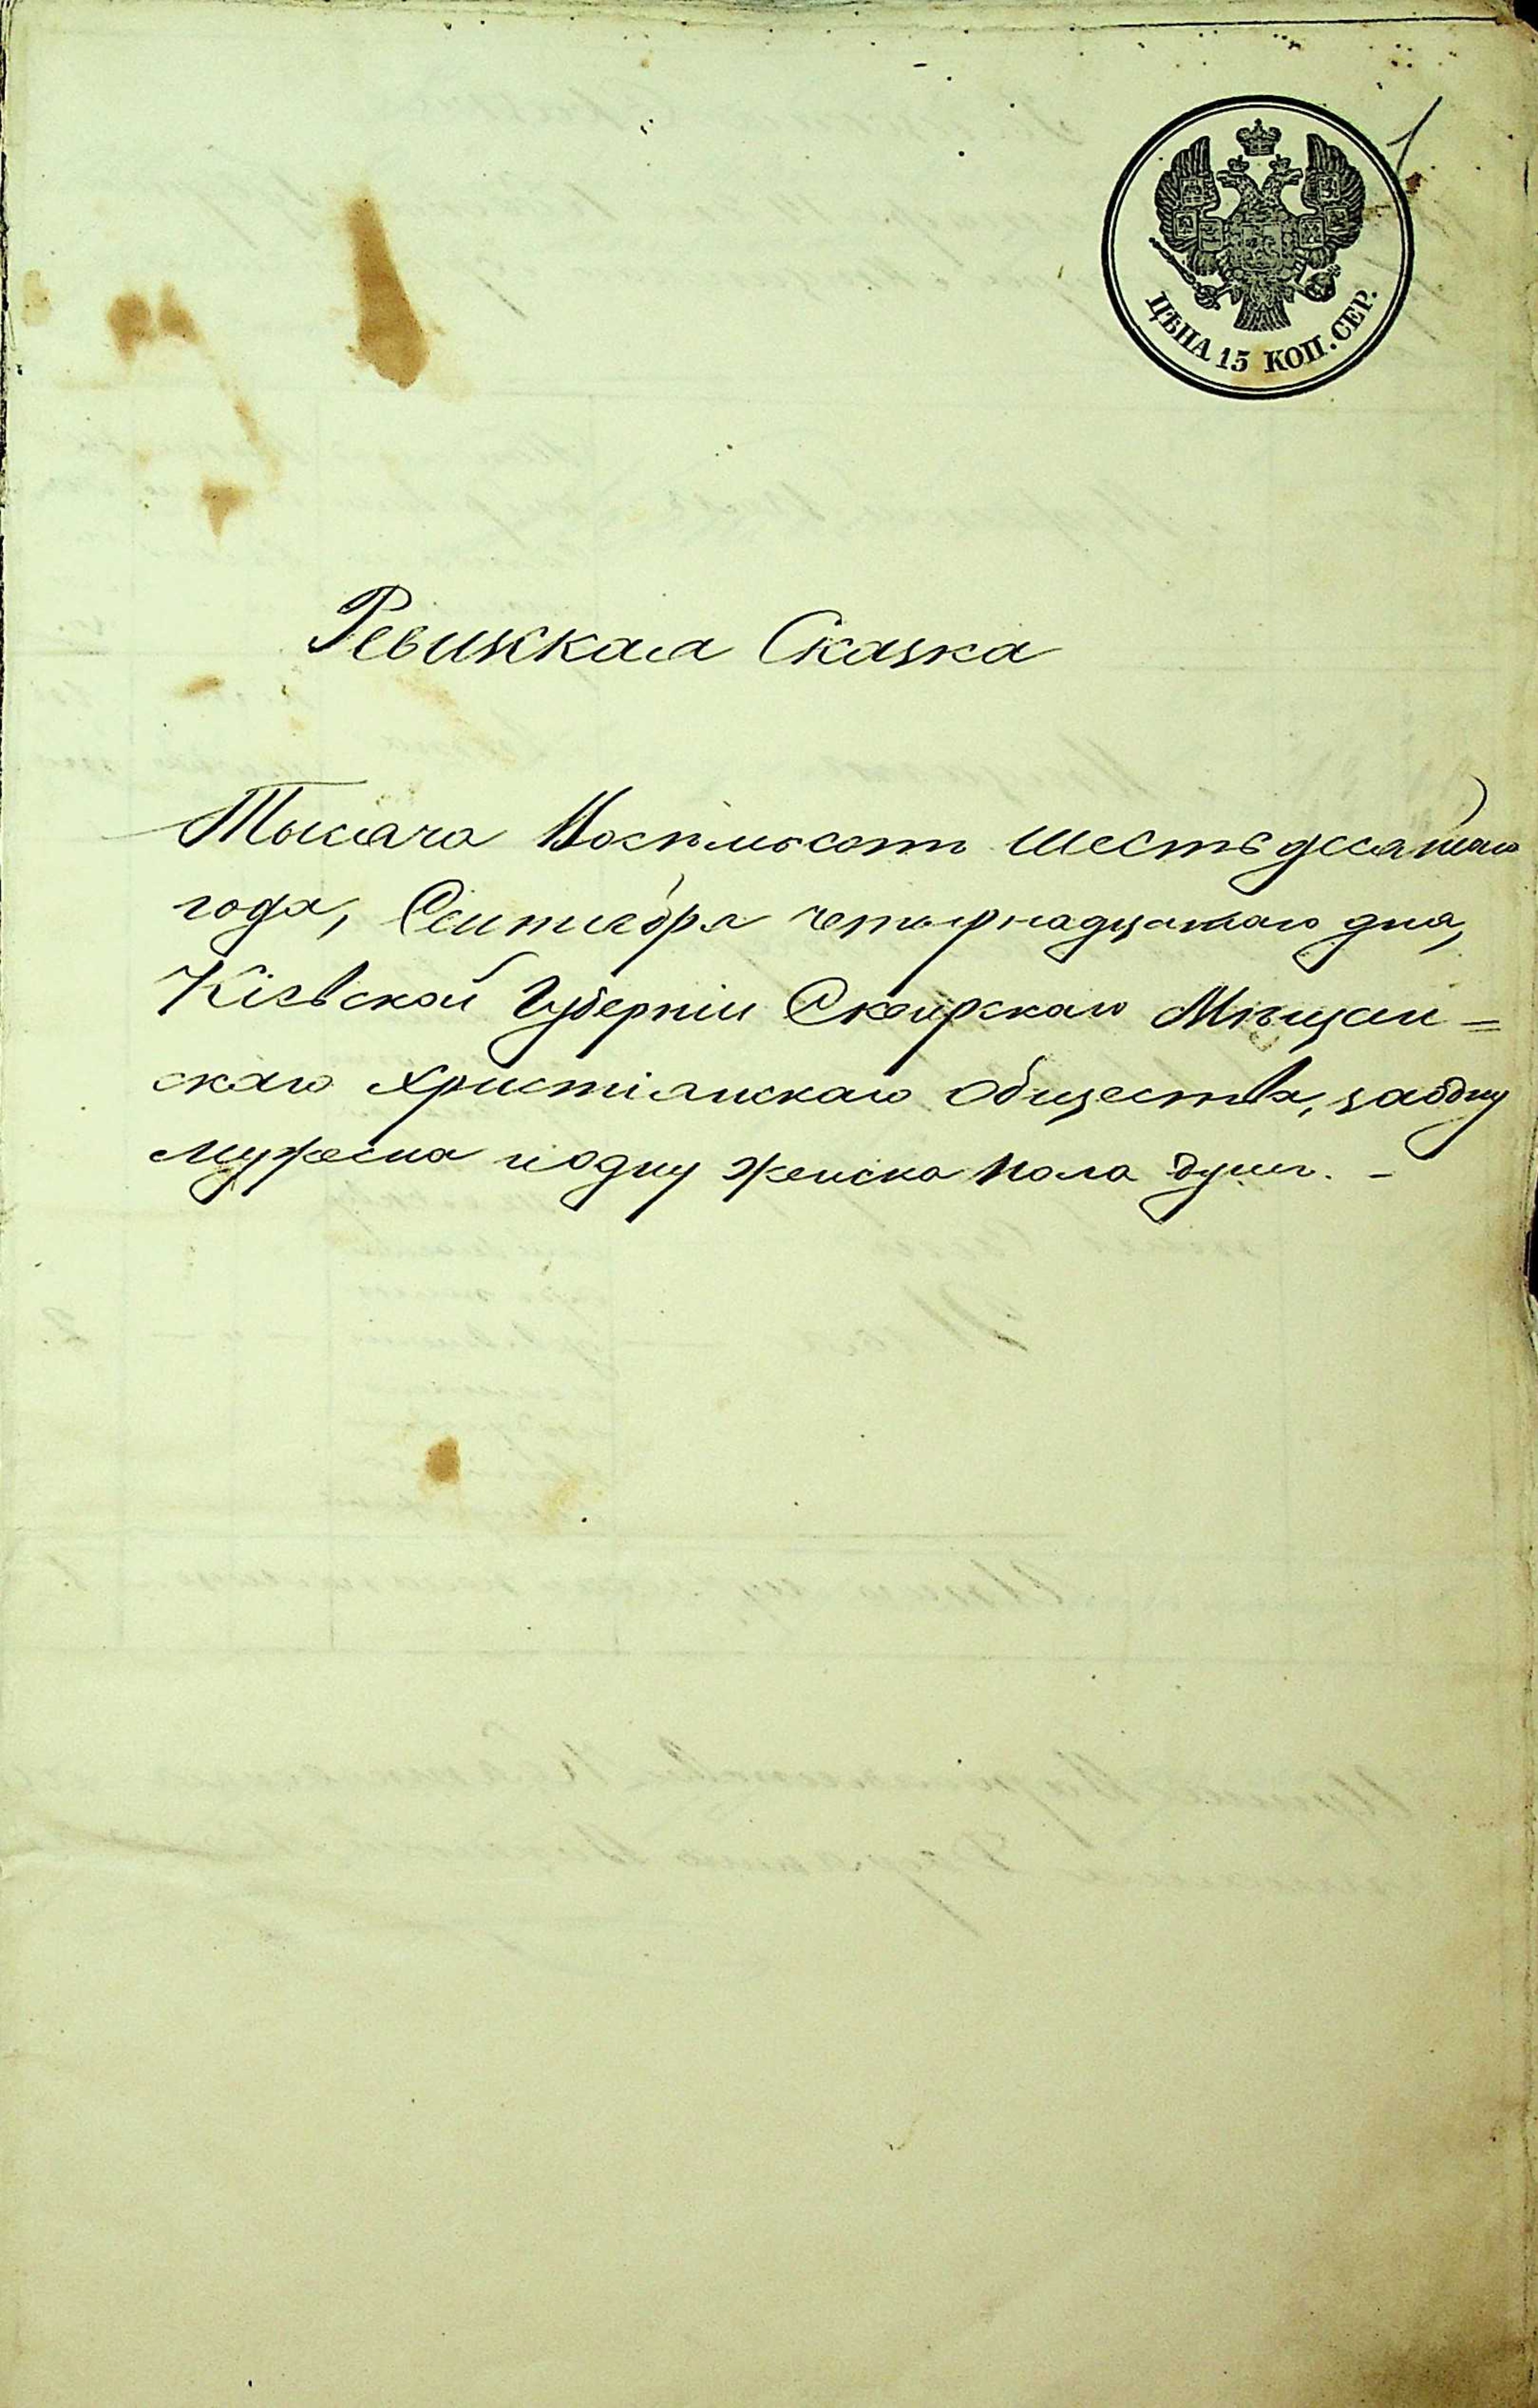 1
ЦѢНА 15 КОП. СЕР.
Ревижская Сказка
Тысяча Восѣмьсотъ Шестьдесятаго
года, Сентября четырнадцатаго дня,
Кіевской Губерніи Сквирскаго Мѣщан=
скаго Христіянскаго Общества, за одну
мужеска и одну женска пола душъ. -